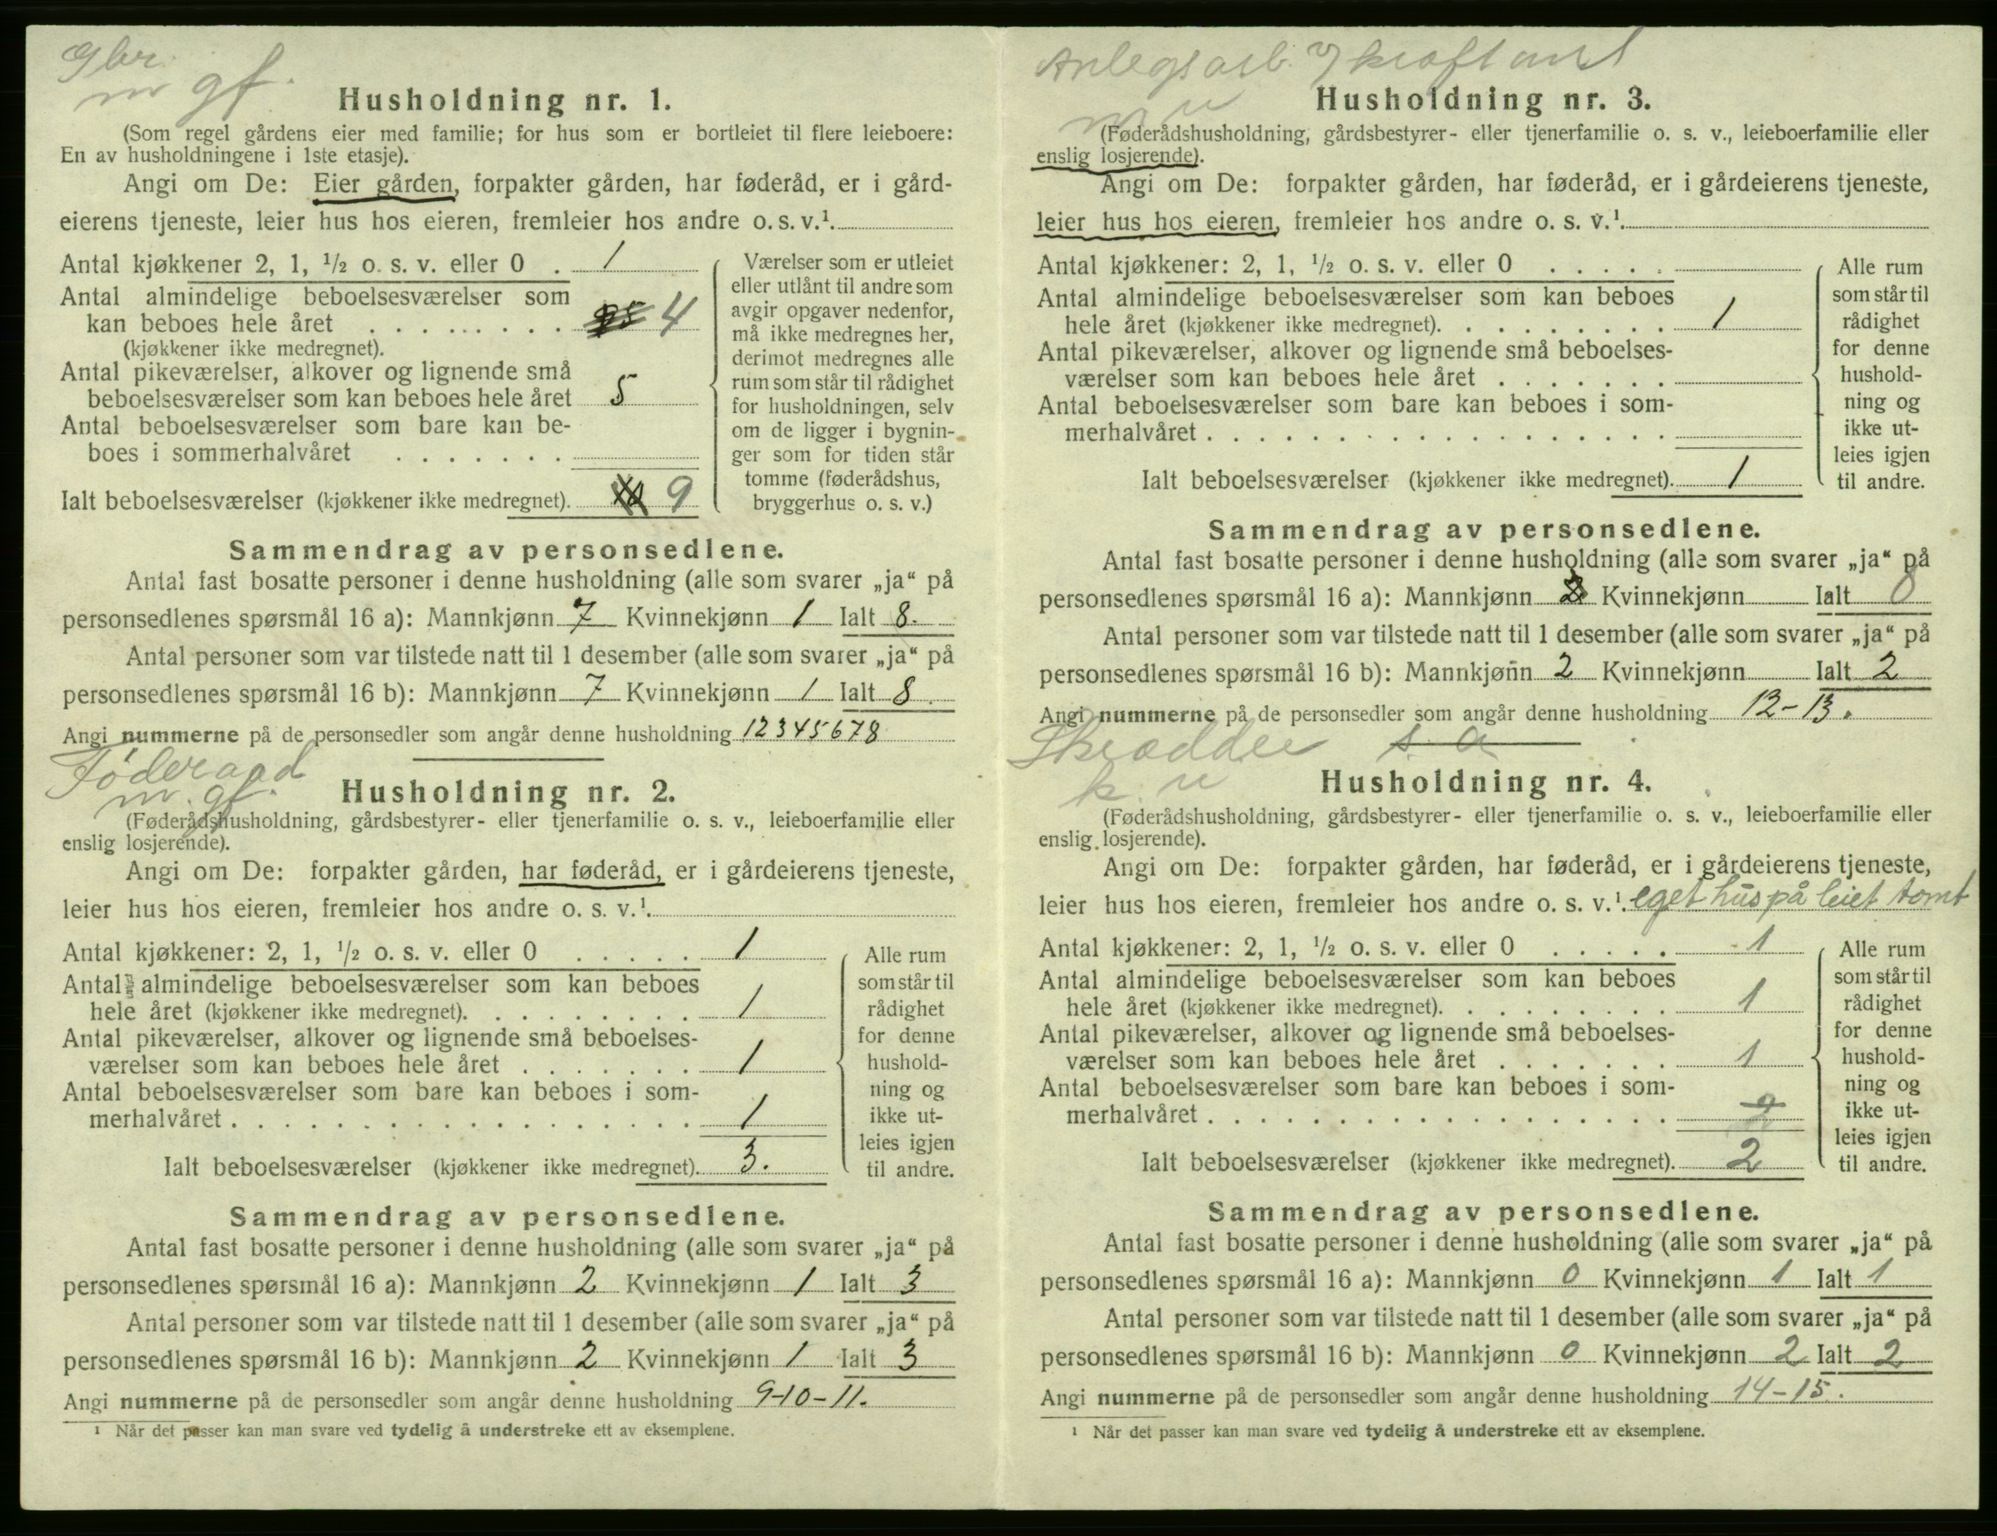 Gbr.
m gf.
Husholdning nr. 1.
(Som regel gårdens eier med familie; for hus som er bortleiet til flere leieboere:
En av husholdningene i 1ste etasje).
Angi om De: Eier gården, forpakter gården, har føderåd, er i gård-
eierens tjeneste, leier hus hos eieren, fremleier hos andre o. s. v.¹
Antal kjøkkener 2, 1, ½ o. s. v. eller 0 . 1
Antal almindelige beboelsesværelser som
kan beboes hele året . . . . . . . . . 4
(kjøkkener ikke medregnet).
Antal pikeværelser, alkover og lignende små
beboelsesværelser som kan beboes hele året 5
Antal beboelsesværelser som bare kan be-
boes i sommerhalvåret . . . . . . .
Ialt beboelsesværelser (kjøkkener ikke medregnet). 9
Værelser som er utleiet
eller utlånt til andre som
avgir opgaver nedenfor,
må ikke medregnes her,
derimot medregnes alle
rum som står til rådighet
for husholdningen, selv
om de ligger i bygnin-
ger som for tiden står
tomme (føderådshus,
bryggerhus o. s. v.)
Sammendrag av personsedlene.
Antal fast bosatte personer i denne husholdning (alle som svarer „ja“ på
personsedlenes spørsmål 16 a): Mannkjønn 7 Kvinnekjønn 1 Ialt 8.
Antal personer som var tilstede natt til 1 desember (alle som svarer „ja“ på
personsedlenes spørsmål 16 b): Mannkjønn 7 Kvinnekjønn 1 Ialt 8.
Angi nummerne på de personsedler som angår denne husholdning 12345678
Føderaad
m. gf.
gf
Husholdning nr. 2.
(Føderådshusholdning, gårdsbestyrer- eller tjenerfamilie o. s. v., leieboerfamilie eller
enslig losjerende).
Angi om De: forpakter gården, har føderåd, er i gårdeierens tjeneste,
leier hus hos eieren, fremleier hos andre o. s. v.¹
Antal kjøkkener: 2, 1, ½ o. s. v. eller 0 . . . . . 1
Antal almindelige beboelsesværelser som kan beboes
hele året (kjøkkener ikke medregnet). . . . . . . . . 1
Antal pikeværelser, alkover og lignende små beboelses-
værelser som kan beboes hele året . . . . . . . 1
Antal beboelsesværelser som bare kan beboes i som-
merhalvåret . . . . . . . . . . . . . . . . . . 1
Ialt beboelsesværelser (kjøkkener ikke medregnet). 3.
Alle rum
som står til
rådighet
for denne
hushold-
ning og
ikke ut-
leies igjen
til andre.
Sammendrag av personsedlene.
Antal fast bosatte personer i denne husholdning (alle som svarer „ja“ på
personsedlenes spørsmål 16 a): Mannkjønn 2 Kvinnekjønn 1 Ialt 3
Antal personer som var tilstede natt til 1 desember (alle som svarer „ja“ på
personsedlenes spørsmål 16 b): Mannkjønn 2 Kvinnekjønn 1 Ialt 3
Angi nummerne på de personsedler som angår denne husholdning 9-10-11.
¹ Når det passer kan man svare ved tydelig å understreke ett av eksemplene.
Anlegsarb. v kraftanl
m u
Husholdning nr. 3.
(Føderådshusholdning, gårdsbestyrer- eller tjenerfamilie o. s. v., leieboerfamilie eller
enslig losjerende).
Angi om De: forpakter gården, har føderåd, er i gårdeierens tjeneste,
leier hus hos eieren, fremleier hos andre o. s. v.¹
Antal kjøkkener: 2, 1, ½ o. s. v. eller 0 . . . . .
Antal almindelige beboelsesværelser som kan beboes
hele året (kjøkkener ikke medregnet). . . . . . . . . 1
Antal pikeværelser, alkover og lignende små beboelses-
værelser som kan beboes hele året . . . . . . .
Antal beboelsesværelser som bare kan beboes i som-
merhalvåret . . . . . . . . . . . . . . . . . .
Ialt beboelsesværelser (kjøkkener ikke medregnet). 1
Alle rum
som står til
rådighet
for denne
hushold-
ning og
ikke ut-
leies igjen
til andre.
Sammendrag av personsedlene.
Antal fast bosatte personer i denne husholdning (alle som svarer „ja“ på
personsedlenes spørsmål 16 a): Mannkjønn 2 Kvinnekjønn Ialt 0
Antal personer som var tilstede natt til 1 desember (alle som svarer „ja“ på
personsedlenes spørsmål 16 b): Mannkjønn 2 Kvinnekjønn Ialt 2
Angi nummerne på de personsedler som angår denne husholdning 12-13.
Skrædder s. a
k. u
Husholdning nr. 4.
(Føderådshusholdning, gårdsbestyrer- eller tjenerfamilie o. s. v., leieboerfamilie eller
enslig losjerende).
Angi om De: forpakter gården, har føderåd, er i gårdeierens tjeneste,
leier hus hos eieren, fremleier hos andre o. s. v.¹ eget hus på leiet tomt
Antal kjøkkener: 2, 1, ½ o. s. v. eller 0 . . . . . 1
Antal almindelige beboelsesværelser som kan beboes
hele året (kjøkkener ikke medregnet). . . . . . . . . 1
Antal pikeværelser, alkover og lignende små beboelses-
værelser som kan beboes hele året . . . . . . . 1
Antal beboelsesværelser som bare kan beboes i som-
merhalvåret . . . . . . . . . . . . . . . . . .
Ialt beboelsesværelser (kjøkkener ikke medregnet). 2
Alle rum
som står til
rådighet
for denne
hushold-
ning og
ikke ut-
leies igjen
til andre.
Sammendrag av personsedlene.
Antal fast bosatte personer i denne husholdning (alle som svarer „ja“ på
personsedlenes spørsmål 16 a): Mannkjønn 0 Kvinnekjønn 1 Ialt 1
Antal personer som var tilstede natt til 1 desember (alle som svarer „ja“ på
personsedlenes spørsmål 16 b): Mannkjønn 0 Kvinnekjønn 2 Ialt 2
Angi nummerne på de personsedler som angår denne husholdning 14-15.
¹ Når det passer kan man svare ved tydelig å understreke ett av eksemplene.